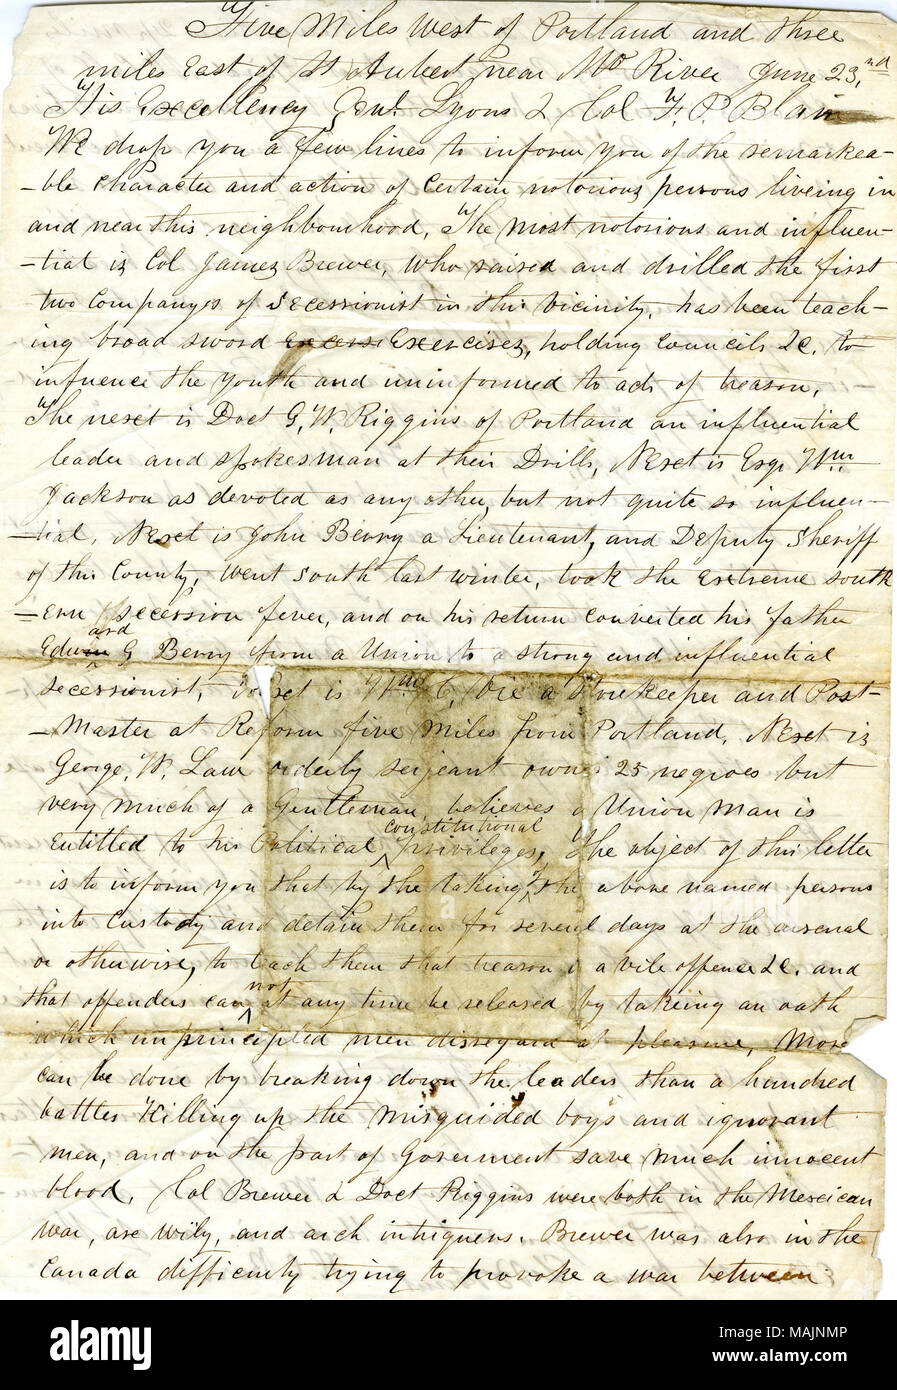 Five Miles West of Portland and three
miles East of St Aubert, near Mo River June 23,nd
His Excellency Genl Lyons & Col F. P. Blair
WE drop you a few lines to inform you of the remarkea-
-ble Character and action of Certain notorious persons liveing in
and near this neighbourhood, The most notorious and influen-
-tial is Col James Brewer, Who raised and drilled the first
two Companys of Secessionist in this Vicinity, has been teach-
ing broad sword Exercises, holding Councils &c. to
infuence the youth and uninformed to acts of treason,
The next is Doct G. W. Riggins of Portland an influential
leader and spokesman at their Drills, Next is Esqr Wm
Jackson as devoted as any other, but not quite so influen-
-tial, Next is John Berry a Lieutenant, and Deputy Sheriff
of this County, Went South last winter, took the Extreme south
-ern secession fever, and on his return Converted his father
Edward G Berry from a Union to a strong and influential
secessionist, Next is Wm C, Vie a Storekeeper and Post-
-Master at Reform five miles from Portland, Next is
George, W. Law orderly serjeant owns 25 negroes but
very much of a Gentleman, believes a Union man is
Entitled to his Political constitutional privileges, The object of this letter
is to inform you that by the taking of the above named persons
into Custody and detain them for several days at the arsenal
or otherwise, to teach them that treason is a vile offence &c. and
that offenders can not at any time be released by takeing an oath
which unprincipled men disregard at pleasure, More
can be done by breaking down the leaders than a hundred
battles Killing up the misguided boys and ignorant
men, and on the part of Goverment save much innocent
blood, Col Brewer & Doct Riggins were both in the Mexican
war, are wily, and arch intriguers. Brewer was also in the
Canada difficulty trying to provoke a war between
alamy
a
Image ID: MAJNMP
www.alamy.com